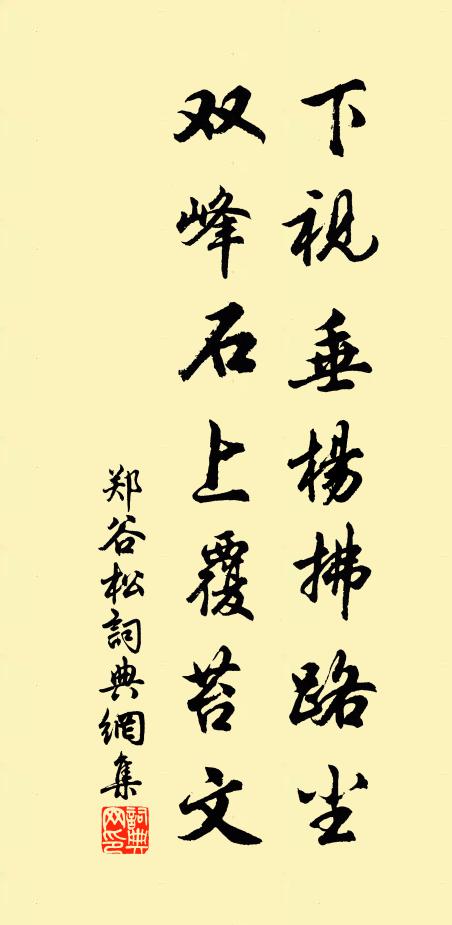 下视垂楊拂路尘
双峰石上覆苔文
郑谷松詞典網集
詞典
网印